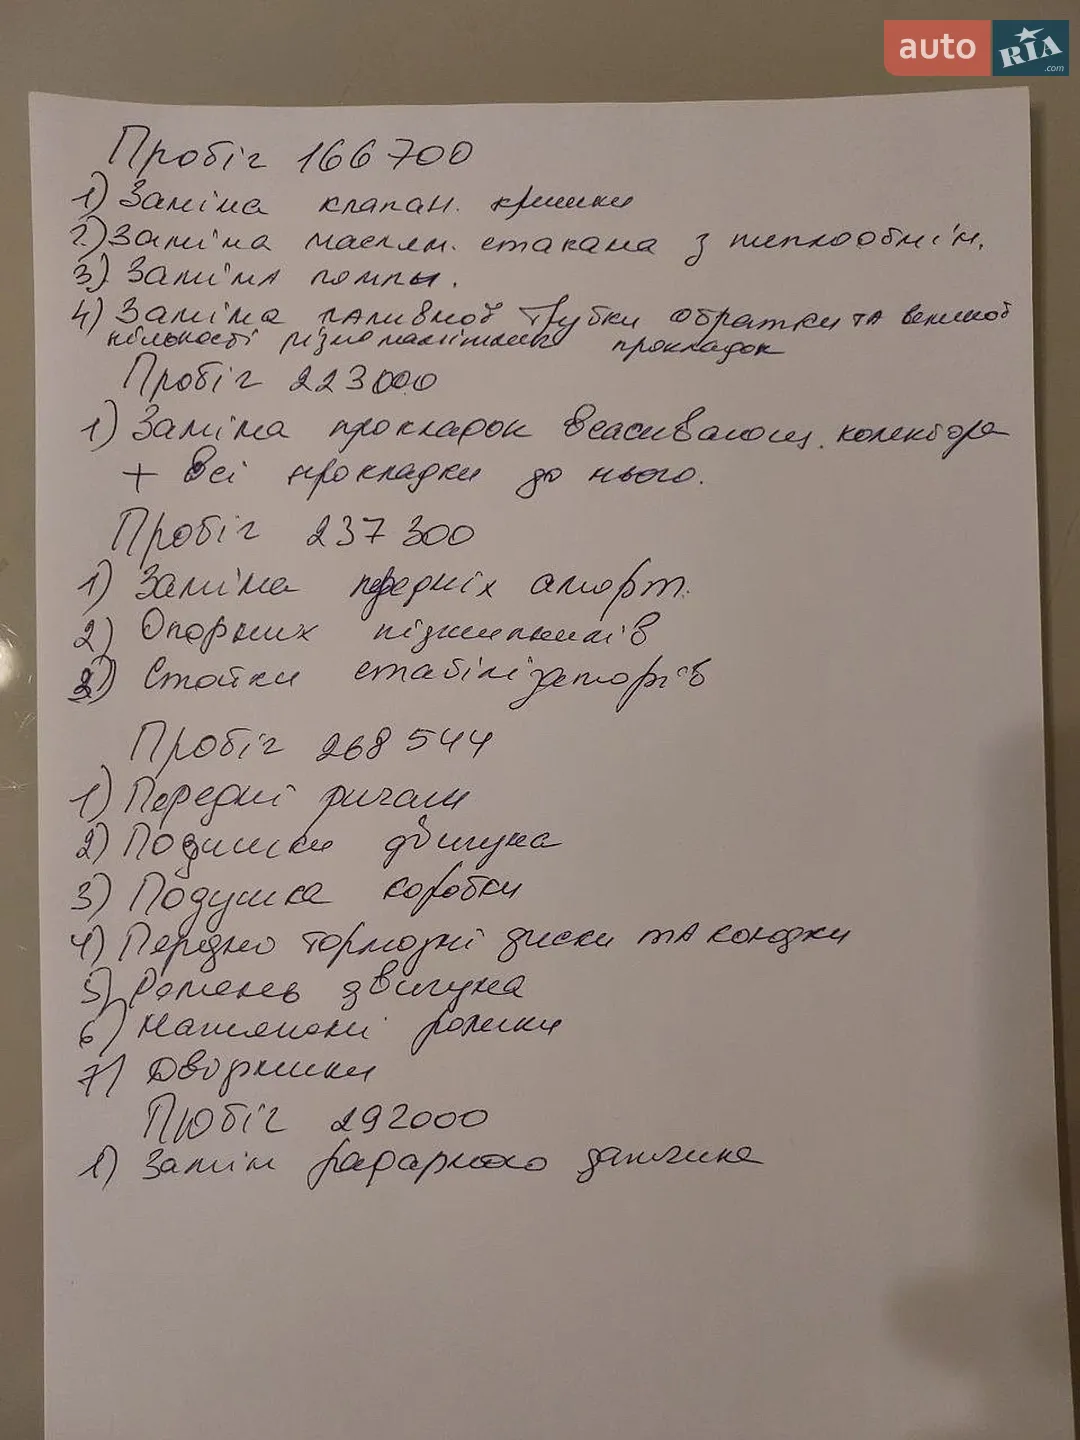 auto RIA .com
Пробіг 166 700
1) Заміна клапан. кришки
2) Заміна маслян. стакана з теплообмін.
3) Заміна помпы.
4) Заміна паливної трубки обратки та великої
кількості різноманітних прокладок
Пробіг 223000
1) Заміна прокладок всасивающ. колектора
+ Всі прокладки до нього.
Пробіг 237 300
1) Заміна передніх аморт.
2) Опорних підшипників
3) Стойки стабілізаторів
Пробіг 268 544
1) Передні ричаги
2) Подушки двигуна
3) Подушка коробки
4) Передно тормозні диски та колодки
5) Ремень двигуна
6) Натяжні ролики
7) Дворники
Пробіг 292000
1) Замін радарного датчика